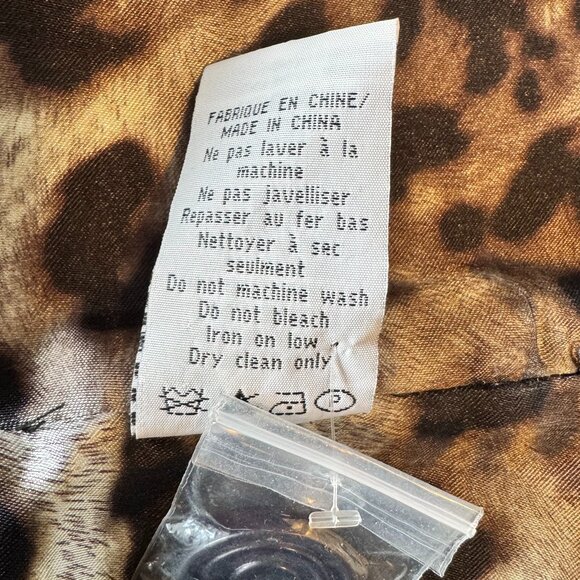 FABRIQUE EN CHINE/
MADE IN CHINA
Ne pas laver à la
machine
Ne pas javelliser
Repasser au fer bas
Nettoyer à sec
seulment
Do not machine wash
Do not bleach
Iron on low
Dry clean only
P